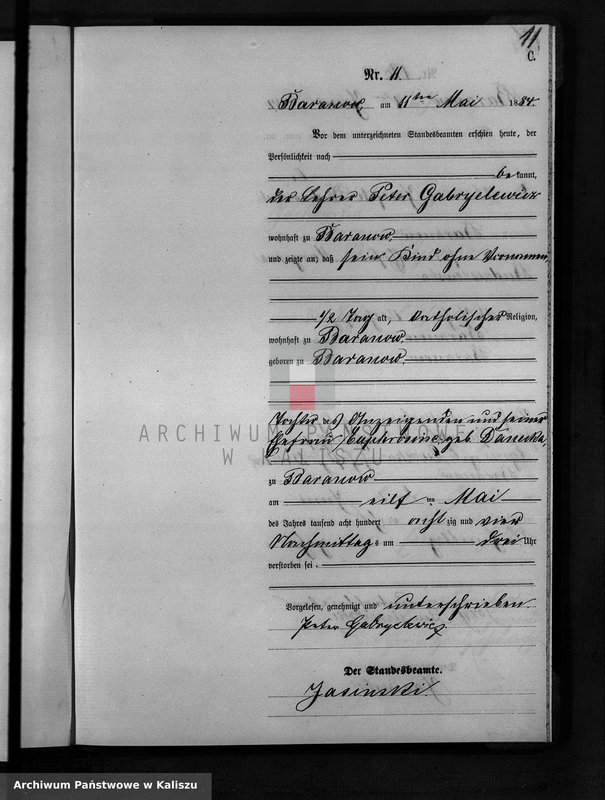 11
C.
Nr. 11.
Baranow am 11ten Mai 1884.
Vor dem unterzeichneten Standesbeamten erschien heute, der
Persönlichkeit nach
bekannt,
der Lehrer Peter Gabryelewicz
wohnhaft zu Baranow,
und zeigte an, daß sein Kind ohne Vornamen,
1/2 Tag alt, katholischer Religion,
wohnhaft zu Baranow,
geboren zu Baranow,
Tochter des Anzeigenden und seiner
Ehefrau Euphrosine, geb. Danecka,
ARCHIWUM PAŃSTWOWE
W KALISZU
zu Baranow
am eilf ten Mai
des Jahres tausend acht hundert acht zig und vier
Nachmittags um drei Uhr
verstorben sei.
Vorgelesen, genehmigt und unterschrieben
Peter Gabryelewicz
Der Standesbeamte.
Jasinski.
Archiwum Państwowe w Kaliszu